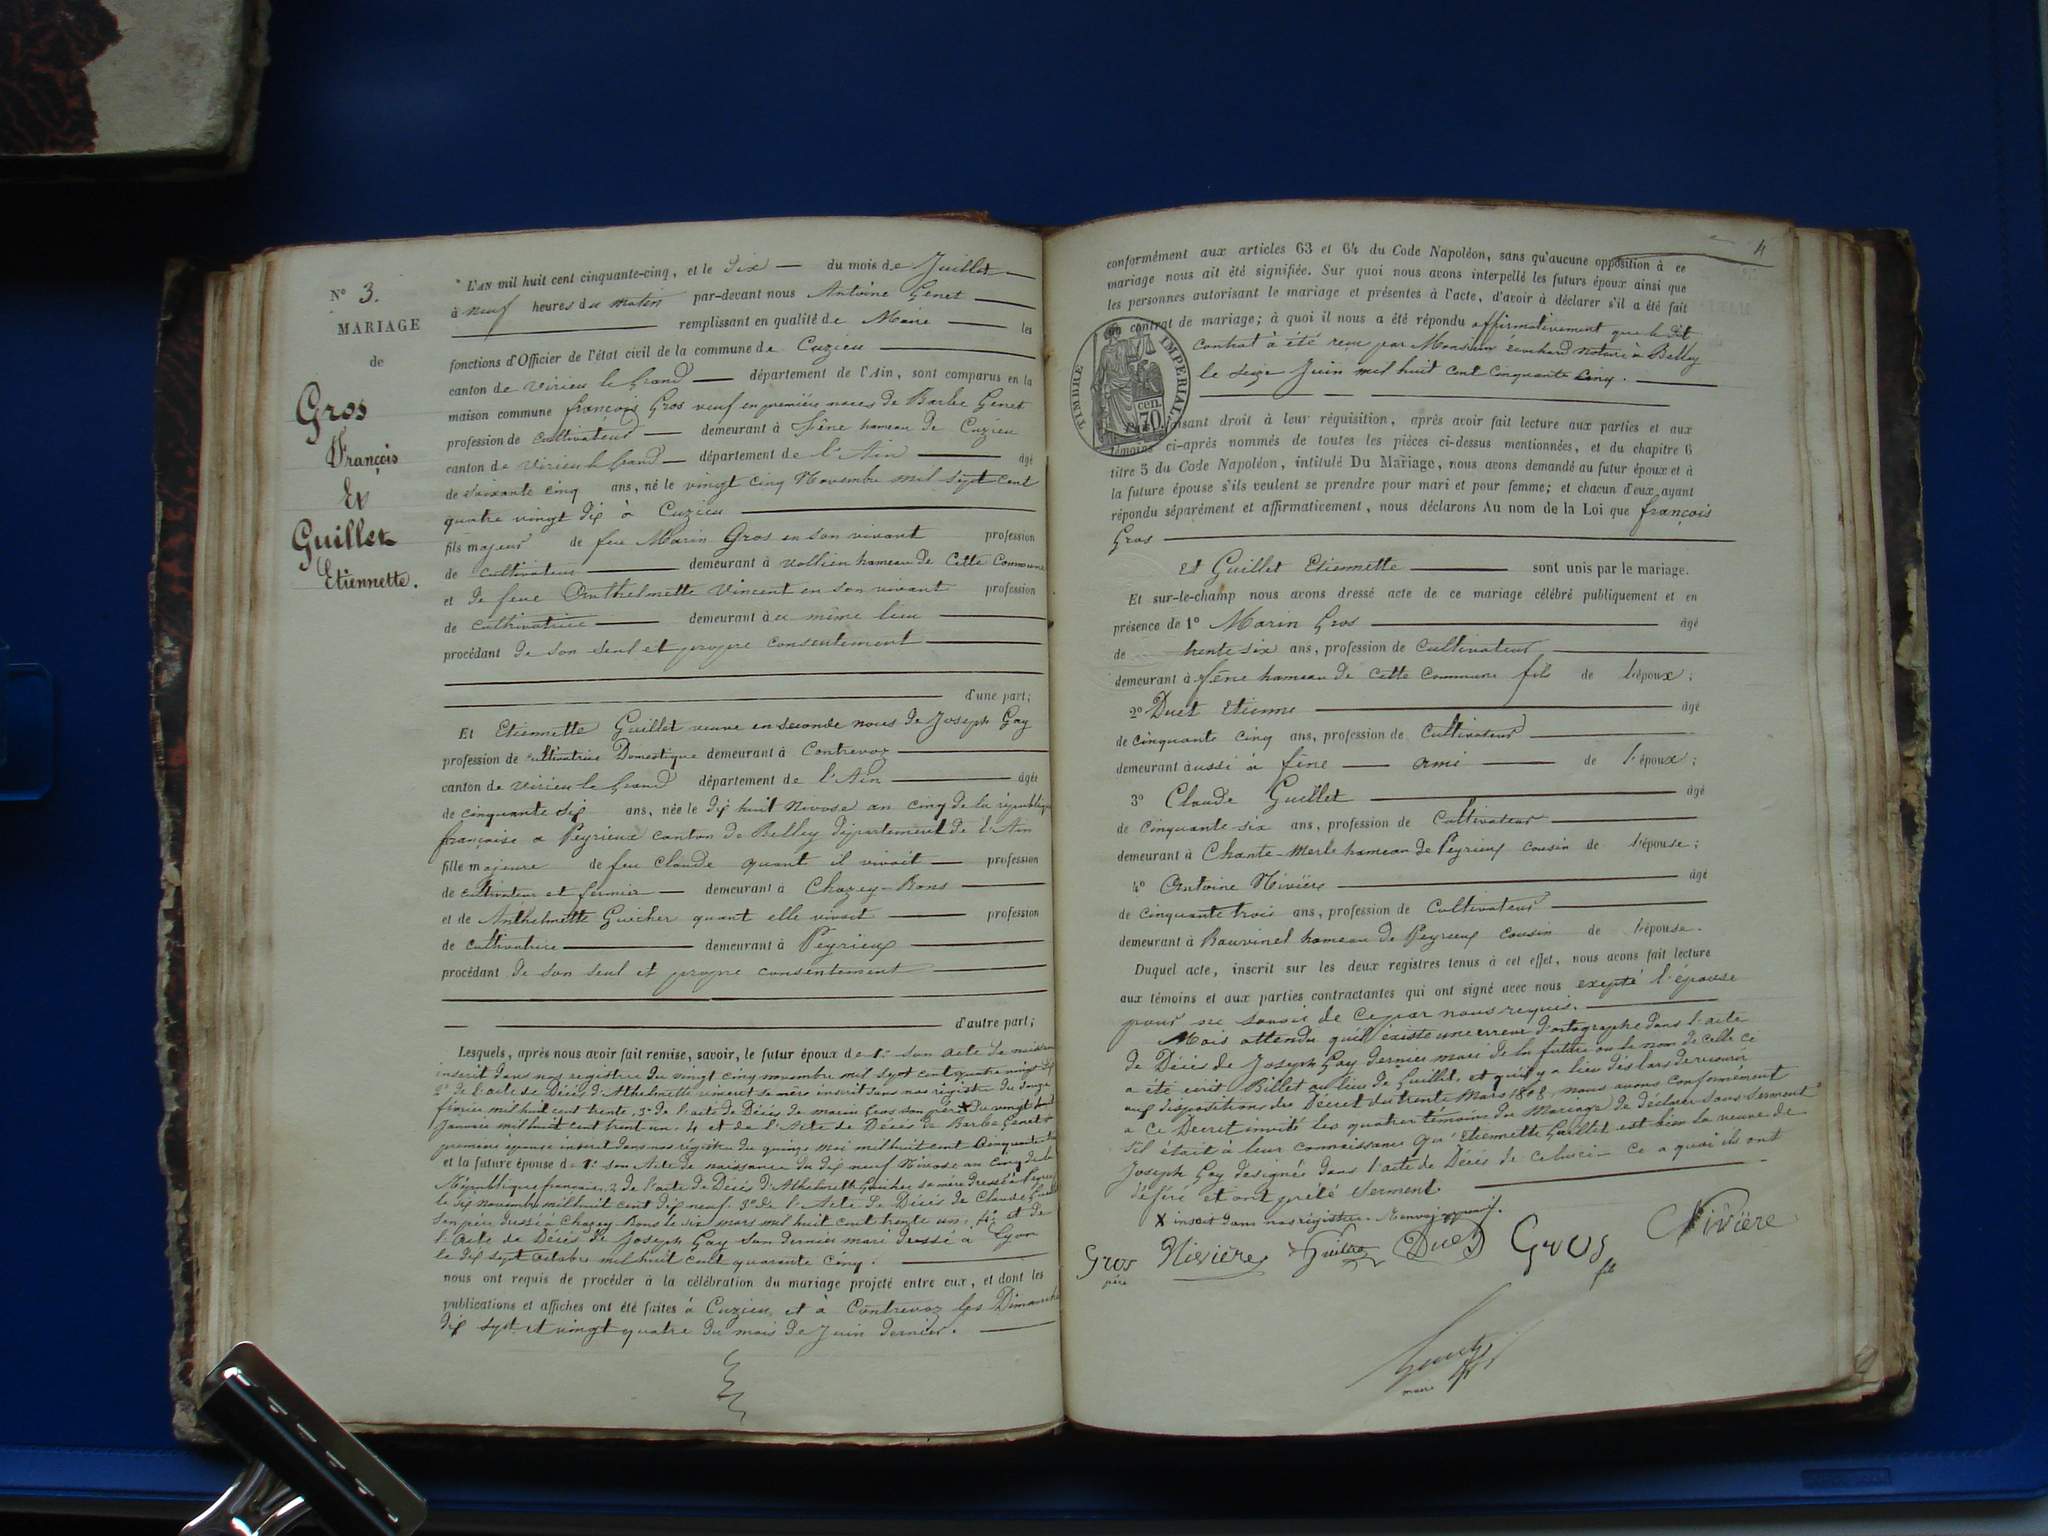 N° 3.
MARIAGE
de
Gros
François
Et
Guillet
Etiennette.
L'AN mil huit cent cinquante-cinq, et le dix du mois de Juillet
à neuf heures du matin par-devant nous Antoine Genet
remplissant en qualité de Maire les
fonctions d'Officier de l'état civil de la commune de Cuzieu
canton de Virieu le Grand département de l'Ain, sont comparus en la
maison commune françois Gros veuf en première noces de Barbe Genet
profession de cultivateur demeurant à fène hameau de Cuzieu
canton de Virieu le Grand département de l'Ain âgé
de soixante cinq ans, né le vingt cinq Novembre mil sept cent
quatre vingt dix à Cuzieu
fils majeur de feu Marin Gros en son vivant profession
de cultivateur demeurant à vollien hameau de Cette Commune
et de feue Anthelmette Vincent en son vivant profession
de cultivatrice demeurant à au même lieu
procédant de son seul et propre consentement
d'une part;
Et Etiennette Guillet veuve en seconde noces de Joseph Gay
profession de cultivatrice Domestique demeurant à Contrevoz
canton de Virieu le Grand département de l'Ain âgée
de cinquante dix ans, née le dix huit Nivose an cinq de la république
française a Peyrieux canton de Belley département de l'Ain
fille majeure de feu Claude quant il vivait profession
de cultivateur et fermier demeurant à Chazey-Bons
et de Anthelmette Guicher quant elle vivait profession
de cultivatrice demeurant à Peyrieux
procédant de son seul et propre consentement
d'autre part;
Lesquels, après nous avoir fait remise, savoir, le futur époux de 1° son acte de naissance
inscrit dans nos registres du vingt cinq novembre mil sept cent quatre vingt dix
2° de l'acte de Décès d'Athelmette vincent sa mère inscrit dans nos registre du douze
février mil huit cent trente, 3° de l'acte de Décès de marin Gros son père X du vingt huit
Janvier mil huit cent trent un. 4 et de l'Acte de Décès de Barbe Genet sa
première épouse inscrit dans nos régistre du quinze mai mil huit cent Cinquante
et la future épouse de 1° son Acte de naissance du dix neuf Nivose an Cinq de la
République française, 2 de l'acte de Décès d'Athelmette Guicher sa mère dressé à Peyrieux
le dix novembre mil huit cent dix neuf. 3° de l'Acte de Décès de Claude Guillet
son père dressé à Chazey-Bons le six mars mil huit cent trente un, 4° et de
l'acte de Décès de Joseph Gay son dernier mari dressé à Lyon
le dix sept octobre mil huit cent quarante cinq.
nous ont requis de procéder à la célébration du mariage projeté entre eux, et dont les
publications et affiches ont été faites à Cuzieu et à Contrevoz les Dimanche
dix sept et vingt quatre du mois de Juin dernier.
4
conformément aux articles 63 et 64 du Code Napoléon, sans qu'aucune opposition à ce
mariage nous ait été signifiée. Sur quoi nous avons interpellé les futurs époux ainsi que
les personnes autorisant le mariage et présentes à l'acte, d'avoir à déclarer s'il a été fait
un contrat de mariage; à quoi il nous a été répondu affirmativement que le dit
contrat à été reçu par Monsieur notaire à Belley
le seize Juin mil huit cent cinquante cinq.
TIMBRE IMPERIAL
70 cen.
faisant droit à leur réquisition, après avoir fait lecture aux parties et aux
témoins ci-après nommés de toutes les pièces ci-dessus mentionnées, et du chapitre 6
titre 5 du Code Napoléon, intitulé Du Mariage, nous avons demandé au futur époux et à
la future épouse s'ils veulent se prendre pour mari et pour femme; et chacun d'eux ayant
répondu séparément et affirmativement, nous déclarons Au nom de la Loi que françois
Gros
Et Guillet Etiennette sont unis par le mariage.
Et sur-le-champ nous avons dressé acte de ce mariage célébré publiquement et en
présence de 1° Marin Gros âgé
de trente six ans, profession de cultivateur
demeurant à fène hameau de cette commune fils de l'époux;
2° Duet Etienne âgé
de cinquante cinq ans, profession de cultivateur
demeurant aussi à fène ami de l'époux;
3° Claude Guillet âgé
de cinquante-six ans, profession de Cultivateur
demeurant à Chante-Merle hameau de Peyrieux cousin de l'épouse;
4° Antoine Nivière âgé
de cinquante trois ans, profession de Cultivateur
demeurant à Bauvinel hameau de Peyrieux cousin de l'épouse.
Duquel acte, inscrit sur les deux registres tenus à cet effet, nous avons fait lecture
aux témoins et aux parties contractantes qui ont signé avec nous exepté l'épouse
pour ne savoir de ce par nous requis.
Mais attendu qu'il existe une erreur d'ortographe dans l'acte
de Décès de Joseph Gay dernier mari de la future ou le nom de celle ci
a été écrit Billet au lieu de Guillet, et qu'il y a lieu dès lors de recourir
aux dispositions du Décret du trente Mars 1808, nous avons conformément
a ce Decret invité les quatre témoins du Mariage de déclarer sous serment
s'il était à leur connaissance qu'Etiennette Guillet est bien la veuve de
Joseph Gay designée dans l'acte de Décès de celui ci ce a quoi ils ont
déféré et ont prété Serment.
X inscrit dans nos régistre. Renvoi approuvé.
Gros Nivière Guillet Duet Gros Nivière
père fils
Genet
maire